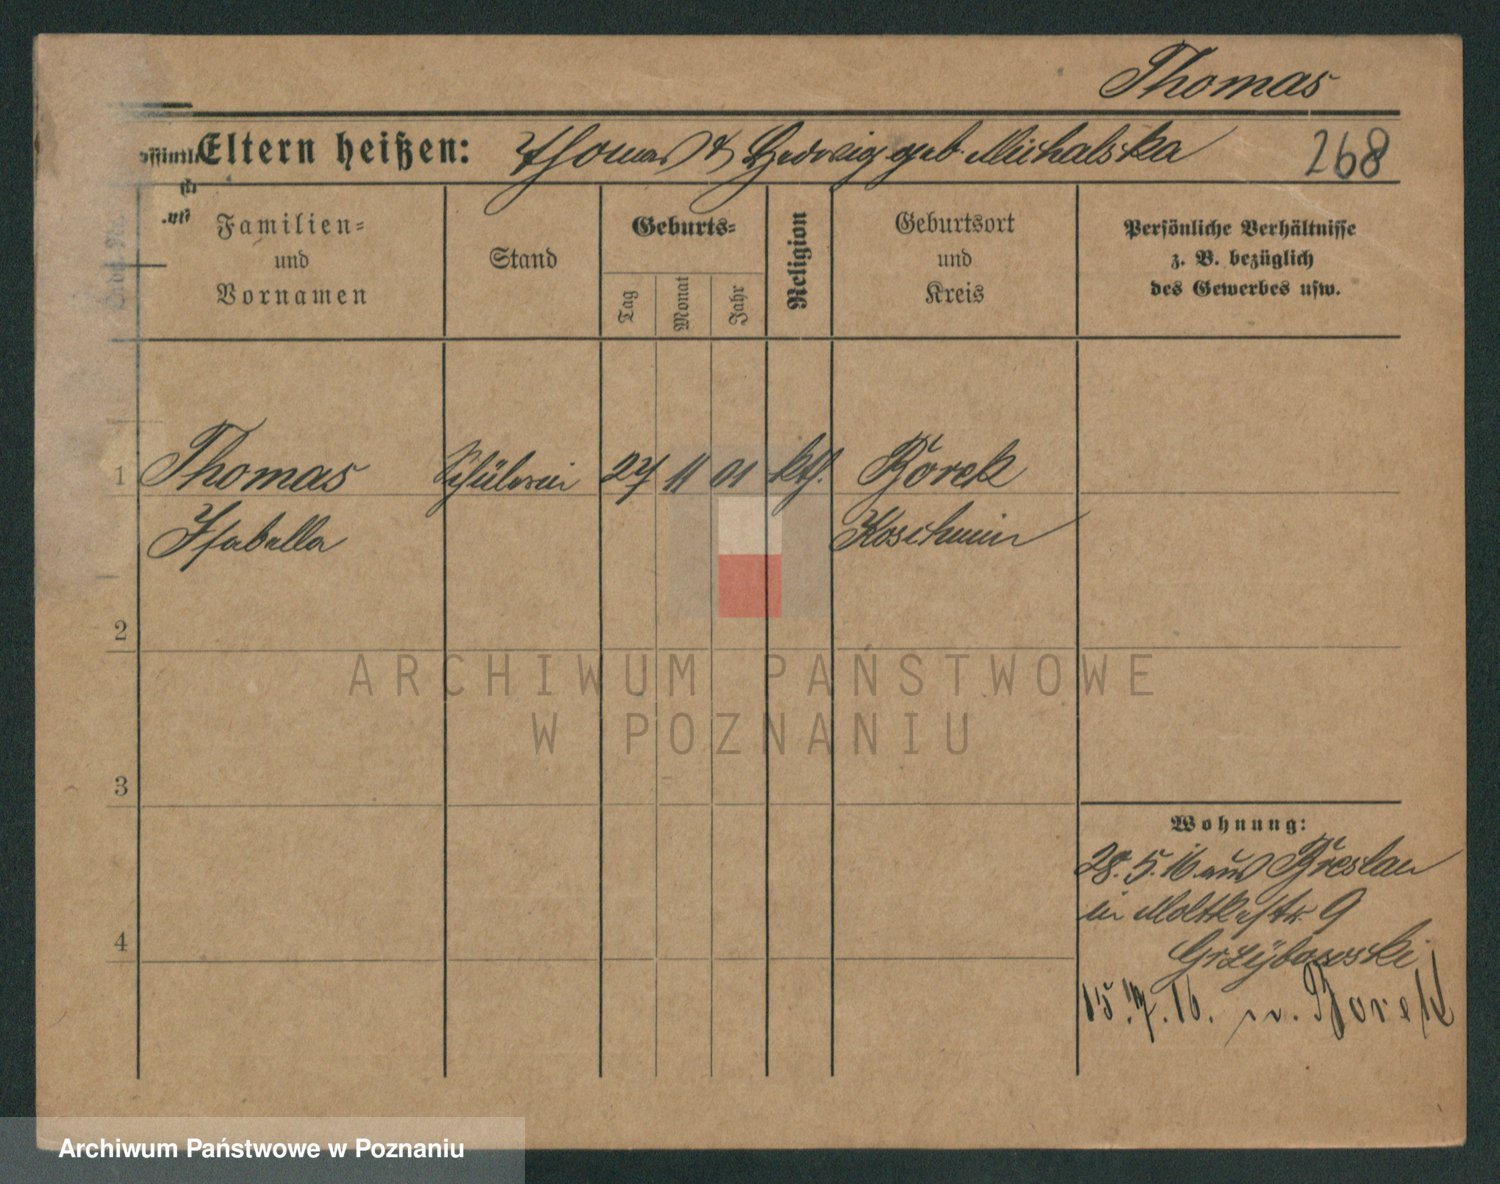 Thomas
Eltern heißen: Thomas & Hedwig geb. Michalska 268
Familien= und Vornamen
Stand
Geburts=
Tag Monat Jahr
Religion
Geburtsort und Kreis
Persönliche Verhältnisse
z. B. bezüglich
des Gewerbes usw.
1 Thomas Schülerin 27 11 01 kth. Borek
Isabella Koschmin
2
ARCHIWUM PAŃSTWOWE
W POZNANIU
3
Wohnung:
28.5.16 aus Breslau
in Moltkestr. 9
4
Grzybowski
15.7.16. n. Borek
Archiwum Państwowe w Poznaniu